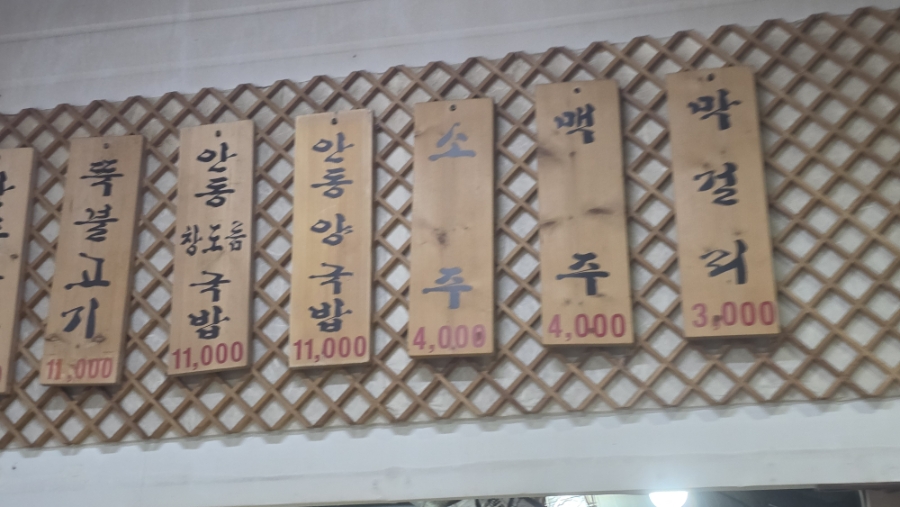 뚝불고기
11,000
안동
창도름
국밥
11,000
안동
양
국밥
11,000
소주
4,000
맥주
4,000
막걸리
3,000